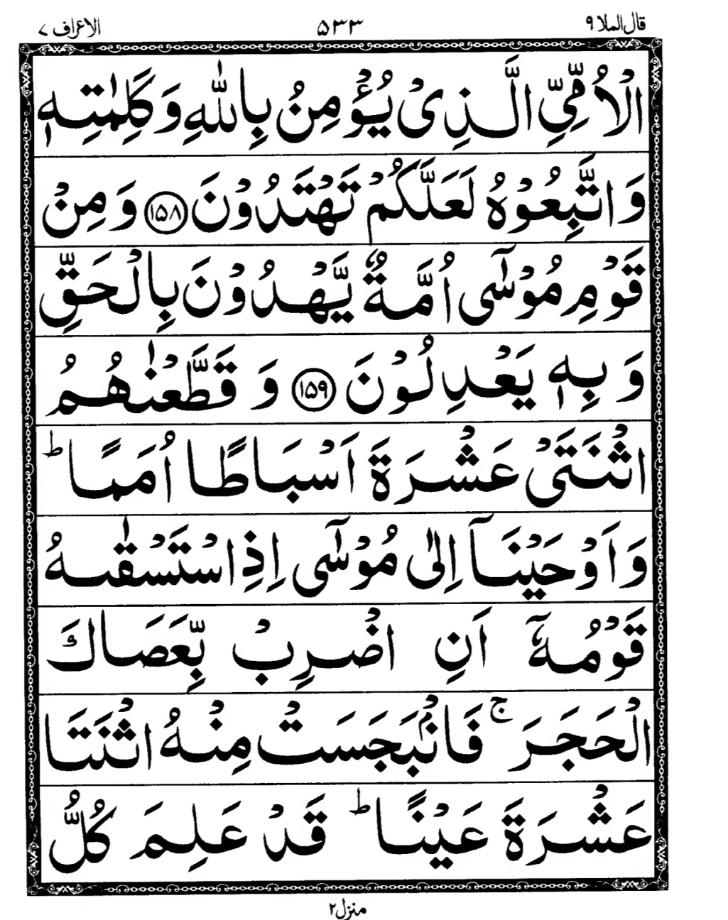 قال الملا ۹ ۵۳۳ الاعراف ۷
الْاُمِّیِّ الَّذِیْ یُؤْمِنُ بِاللّٰهِ وَكَلِمٰتِهٖ
وَاتَّبِعُوْهُ لَعَلَّكُمْ تَهْتَدُوْنَ ﴿۱۵۸﴾ وَمِنْ
قَوْمِ مُوْسٰۤی اُمَّةٌ یَّهْدُوْنَ بِالْحَقِّ
وَبِهٖ یَعْدِلُوْنَ ﴿۱۵۹﴾ وَقَطَّعْنٰهُمُ
اثْنَتَیْ عَشْرَةَ اَسْبَاطًا اُمَمًا ؕ
وَاَوْحَیْنَاۤ اِلٰی مُوْسٰۤی اِذِ اسْتَسْقٰىهُ
قَوْمُهٗۤ اَنِ اضْرِبْ بِّعَصَاكَ
الْحَجَرَ ۚ فَانْۢبَجَسَتْ مِنْهُ اثْنَتَا
عَشْرَةَ عَیْنًا ؕ قَدْ عَلِمَ كُلُّ
منزل ۲